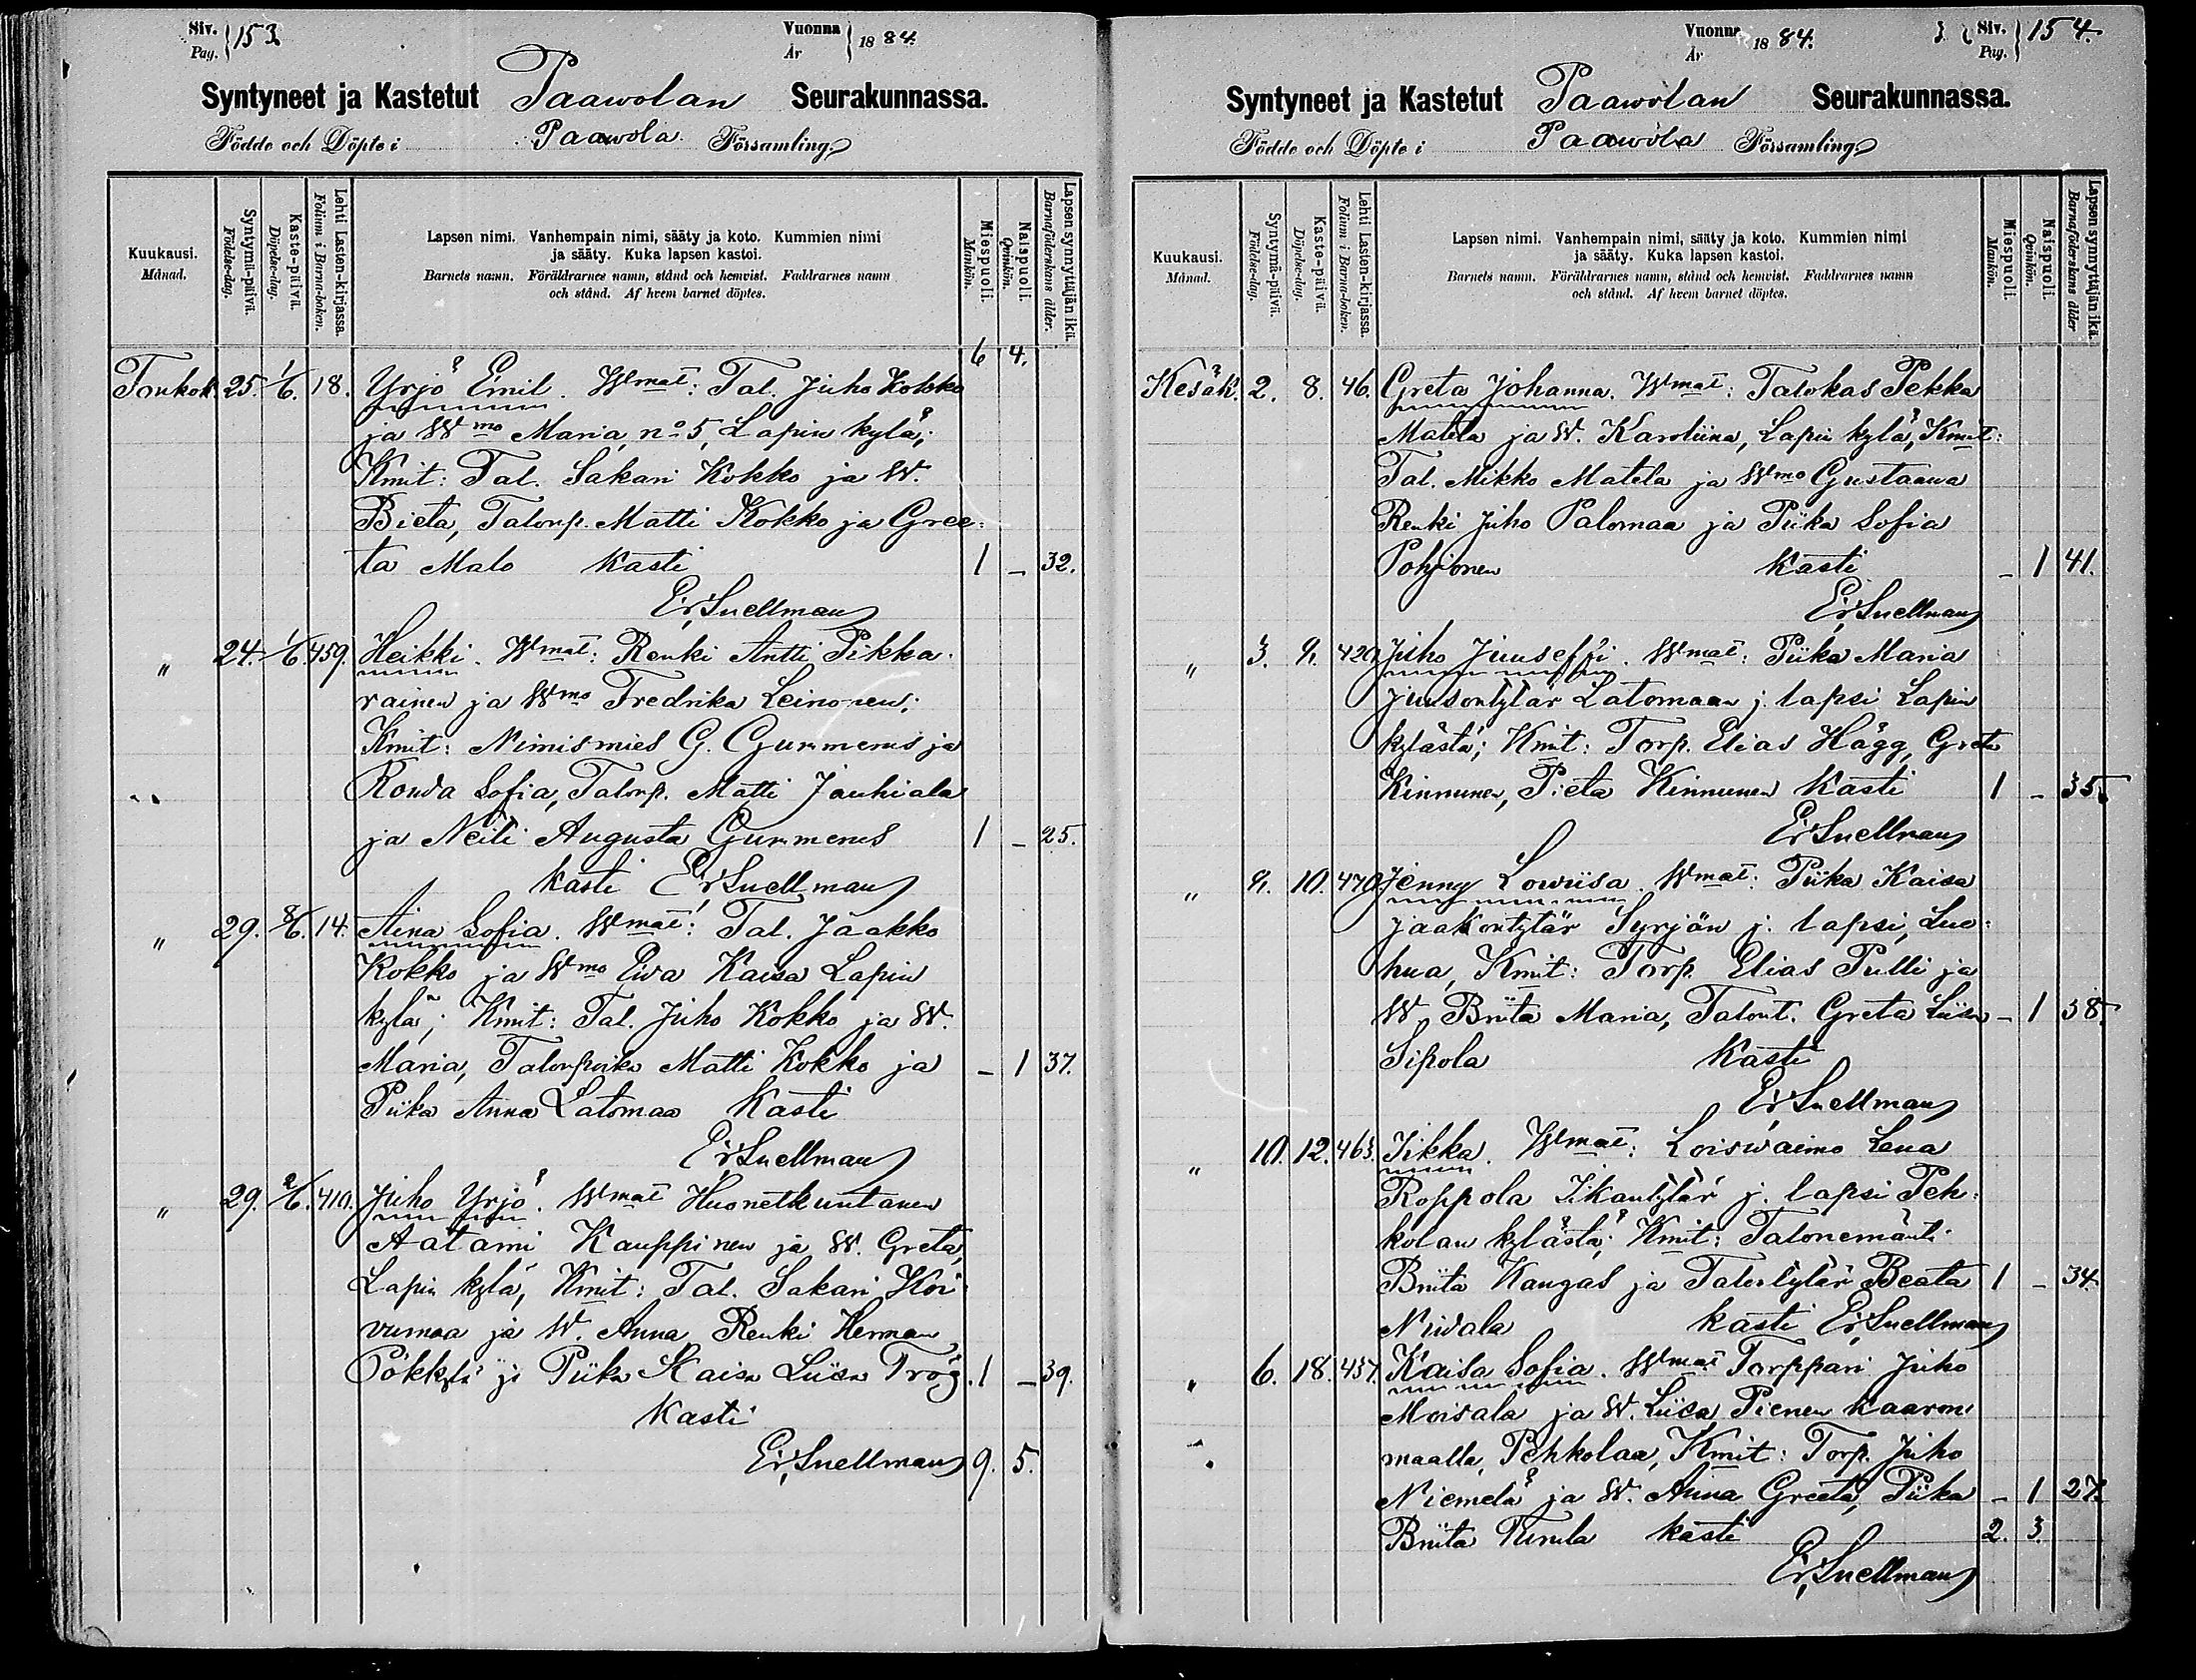 Siv. Pag. 153.
Vuonna År 1884.
Syntyneet ja Kastetut Paawolan Seurakunnassa.
Födde och Döpte i Paawola Församling
Kuukausi. Månad.
Syntymä-päivä. Födelse-dag.
Kaste-päivä. Döpelse-dag.
Lehti Lasten-kirjassa. Folium i Barna-boken.
Lapsen nimi. Vanhempain nimi, sääty ja koto. Kummien nimi
ja sääty. Kuka lapsen kastoi.
Barnets namn. Föräldrarnes namn, stånd och hemvist. Faddrarnes namn
och stånd. Af hvem barnet döptes.
Miespuoli. Mankön.
Naispuoli. Qvinkön.
Lapsen synnyttäjän ikä. Barnaföderskans ålder.
6 4.
Toukok. 25. 1/6. 18. Yrjö Emil. Wmat: Tal. Juho Kokko
ja Wmo Maria, no 5, Lapin kylä;
Kmit: Tal. Sakari Kokko ja W.
Bieta, Talonp. Matti Kokko ja Gree-
ta Malo kasti 1 - 32.
Er. Snellman
" 24. 1/6. 459. Heikki. Wmat: Renki Antti Pikka-
rainen ja Wmo Fredrika Leinonen;
Kmit: Nimismies G. Gummerus ja
Rouva Sofia, Talonp. Matti Jauhiala
ja Neiti Augusta Gummerus 1 - 25.
kasti Er. Snellman
" 29. 8/6. 14. Aina Sofia. Wmat: Tal. Jaakko
Kokko ja Wmo Ewa Kaisa Lapin
kylä; Kmit: Tal. Juho Kokko ja W.
Maria, Talonpoika Matti Kokko ja - 1 37.
Piika Anna Latomaa kasti
Er. Snellman
" 29. 2/6. 410. Juho Yrjö. Wmat Huonetkuntanen
Aatami Kauppinen ja W. Greta,
Lapin kylä, Kmit: Tal. Sakari Koi-
vumaa ja W. Anna, Renki Herman
ja Piika Kaisa Liisa Trög. 1 - 39.
kasti
Er. Snellman 9. 5.
Vuonna År 1884.
Siv. Pag. 154.
Syntyneet ja Kastetut Paawolan Seurakunnassa.
Födde och Döpte i Paawola Församling
Kuukausi. Månad.
Syntymä-päivä. Födelse-dag.
Kaste-päivä. Döpelse-dag.
Lehti Lasten-kirjassa. Folium i Barna-boken.
Lapsen nimi. Vanhempain nimi, sääty ja koto. Kummien nimi
ja sääty. Kuka lapsen kastoi.
Barnets namn. Föräldrarnes namn, stånd och hemvist. Faddrarnes namn
och stånd. Af hvem barnet döptes.
Miespuoli. Mankön.
Naispuoli. Qvinkön.
Lapsen synnyttäjän ikä. Barnaföderskans ålder
Kesäk. 2. 8. 46. Greta Johanna. Wmat: Talokas Pekka
Matela ja W. Karoliina, Lapin kylä; Kmit:
Tal. Mikko Matela ja Wmo Gustaawa
Renki Juho Palomaa ja Piika Sofia
Pohjonen kasti - 1 41.
Er. Snellman
" 3. 9. 429. Juho Juuseppi. Wmat: Piika Maria
Juusontytär Latomaan j. lapsi Lapin
kylästä; Kmit: Torp. Elias Hägg, Greta
Kinnunen, Pieta Kinnunen kasti 1 - 35.
Er Snellman
" 9. 10. 470. Jenny Lowiisa. Wmat: Piika Kaisa
Jaakontytär Syrjän j. lapsi, Luo-
hua, Kmit: Torp. Elias Pulli ja
W. Briita Maria, Talont. Greta Liisa - 1 38.
Sipola kasti
Er. Snellman
" 10. 12. 463. Iikka. Wmat: Loiswaimo Lena
Roppola Iikantytär j. lapsi Peh-
kolan kylästä; Kmit: Talonemäntä
Briita Kangas ja Talontytär Beata 1 - 34.
Niwala kasti Er. Snellman
" 6. 18. 437. Kaisa Sofia. Wmat Torppari Juho
Moisala ja W. Liisa Pienen kaaron-
maalla, Pehkolaa, Kmit: Torp. Juho
Niemelä ja W. Anna Greeta, Piika - 1 27.
Briita kasti 2. 3.
Er. Snellman